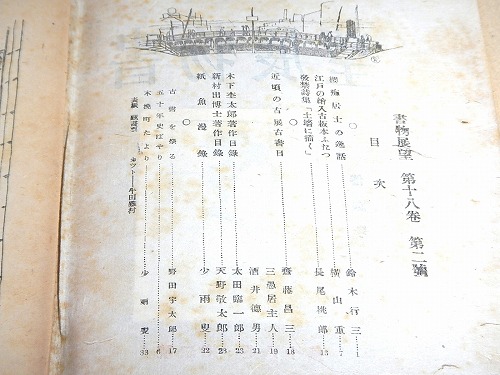 書物展望 第十八卷 第二號
目次
居士の逸話 鈴木行三 1
江戸の繪入古板本ふたつ 横山重 7
發禁詩集『土塊に描く』 長尾桃郎 13
○
近頃の古展古書目 齋藤昌三 18
三愚居主人 19
酒井德男 21
○
木下杢太郎著作目錄 太田臨一郎 23
新村出博士著作目錄 天野敬太郎 28
紙魚漫錄 少雨叟 22
○
古書を祭る 野田宇太郎 17
五十年史ばやり 6
木挽町たより 少雨叟 33
カツト—牛田雞村